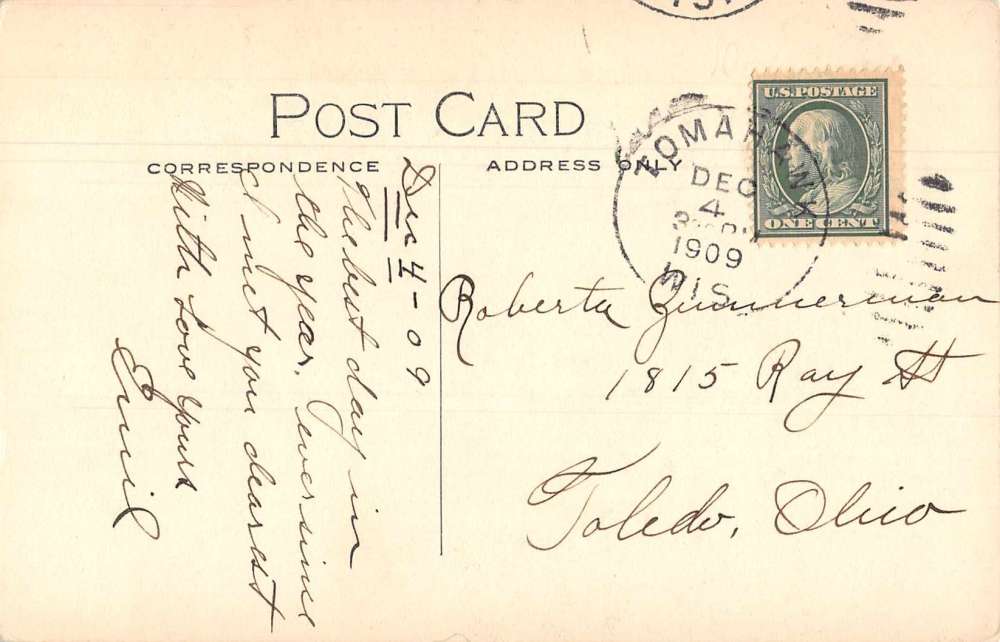 POST CARD
CORRESPONDENCE
ADDRESS ONLY
U.S. POSTAGE
ONE CENT
TOMAHAWK
DEC
4
1909
WIS.
Dec 4 - 09
The best day in
the year, ever since
I met you dearest
With Love yours
Emil
Roberta Zimmerman
1815 Ray St
Toledo, Ohio